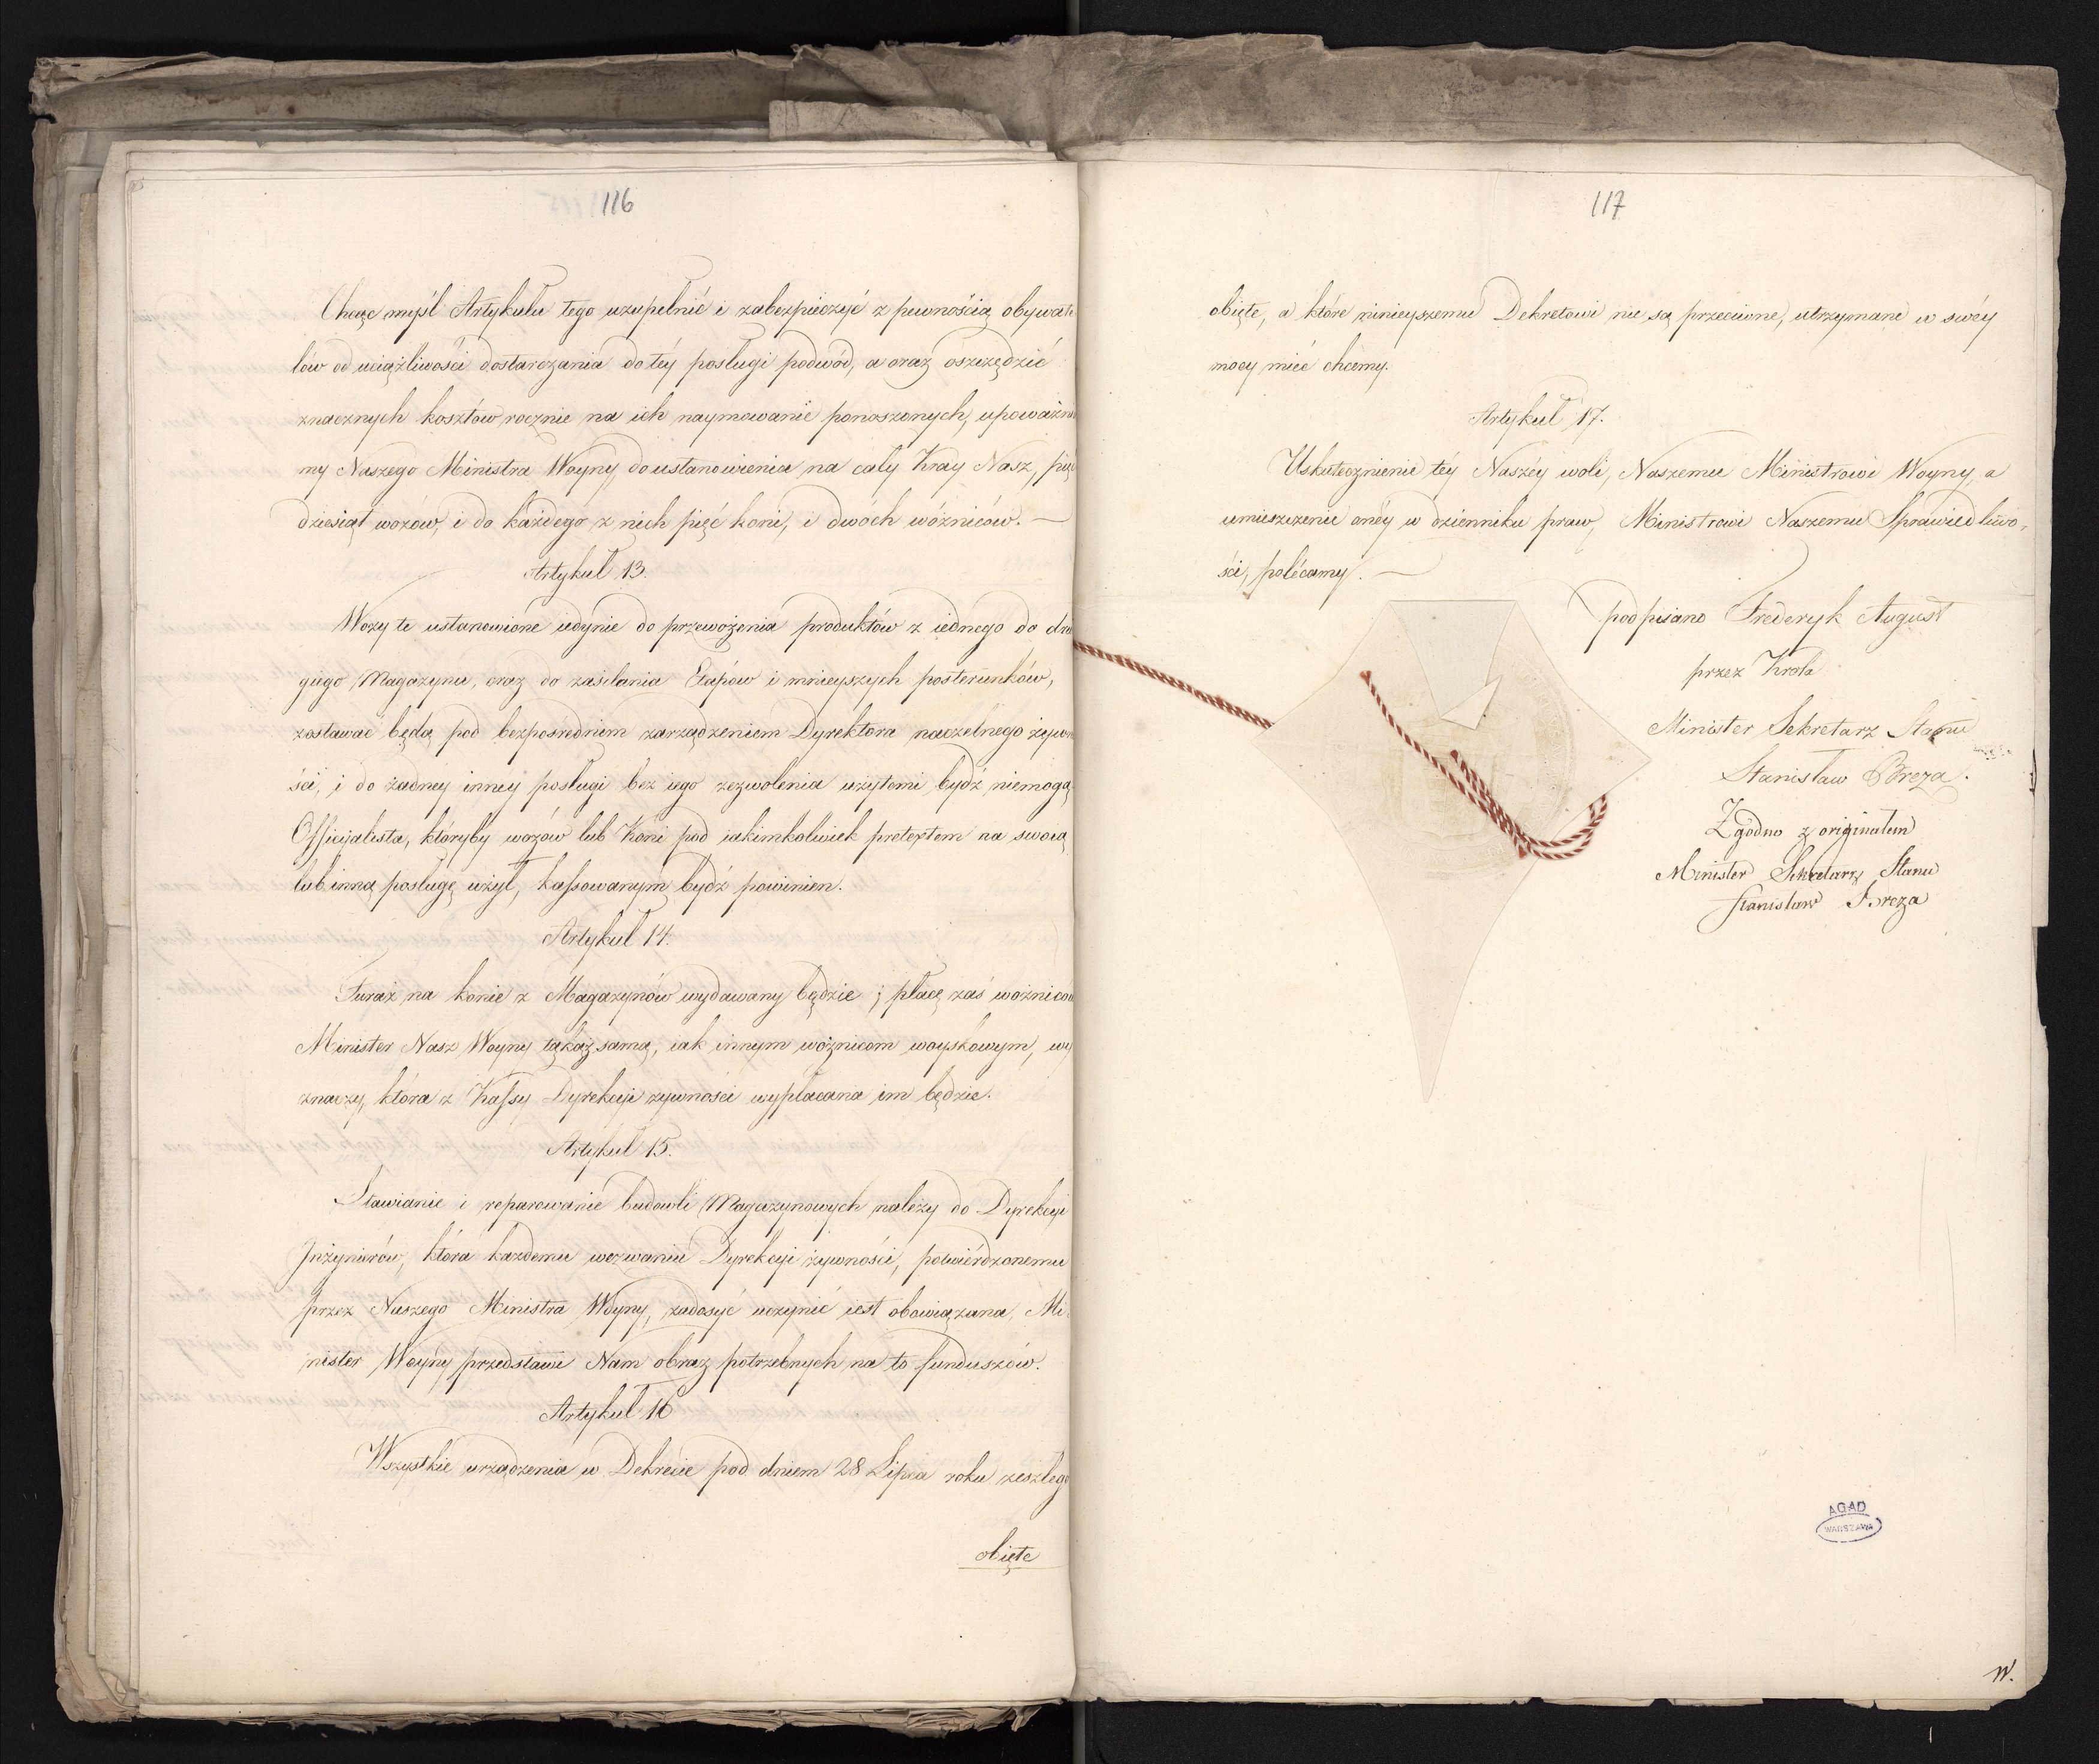 116
Chcąc myśl Artykułu tego uzupełnić i zabezpieczyć z pewnością obywate
lów od uciążliwości dostarczania do téy posługi podwód, a oraz oszczędzić
znacznych kosztów rocznie na ich naymowanie ponoszonych, upoważnia
my Naszego Ministra Woyny, do ustanowienia na cały Kray Nasz, pięć
dziesiąt wozów, i do każdego z nich pięć koni, i dwóch woźniców. —
Artykuł 13.
Wozy te ustanowione iedynie do przewożenia produktów z iednego do dru
giego Magazynu, oraz do zasilania Etapów i mnieyszych posterunków,
zostawać będą pod bezpośredniem zarządzeniem Dyrektora naczelnego żywno
ści, i do żadney inney posługi bez iego zezwolenia użytemi bydź niemogą
Officyalista, któryby wozów lub Koni pod iakimkolwiek pretextem na swoią
lub inną posługę użył, kassowanym bydź powinien.
Artykuł 14.
Furaż na konie z Magazynów wydawany będzie; płacę zaś woźnicom
Minister Nasz Woyny takąż samą, iak innym woźnicom woyskowym, wy
znaczy, która z Kassy Dyrekcyi żywności wypłacana im będzie.
Artykuł 15.
Stawianie i reparowanie budowli Magazynowych należy do Dyrekcyi
Inżynierów, która każdemu wezwaniu Dyrekcyi żywności, potwiérdzonemu
przez Naszego Ministra Woyny, zadosyć uczynić iest obowiązana, Mi-
nister Woyny przedstawi Nam obraz potrzebnych na to funduszów.
Artykuł 16
Wszystkie urządzenia w Dekrecie pod dniem 28 Lipca roku zeszłego
obięte
117
obięte, a które ninieyszemu Dekretowi nie są przeciwne, utrzymane w swéy
mocy mieć chcemy.
Artykuł 17.
Uskutecznienie téy Naszéy woli, Naszemu Ministrowi Woyny, a
umieszczenie onéy w dzienniku praw, Ministrowi Naszemu Sprawiedliwo-
ści, polécamy. —
podpisano Frederyk August
przez Króla
Minister Sekretarz Stanu
Stanisław Breza.
Zgodno z originałem
Minister Sekretarz Stanu
Stanisław Breza
AGAD
WARSZAWA
W.